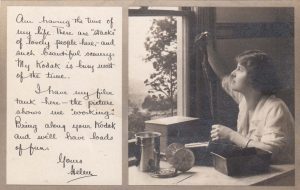 Am having the time of
my life. There are "stacks"
of lovely people here - and
such beautiful scenery.
My Kodak is busy most
of the time.
I have my film
tank here - the picture
shows me "working".
Bring along your Kodak
and we'll have loads
of fun.
Yours
Helen